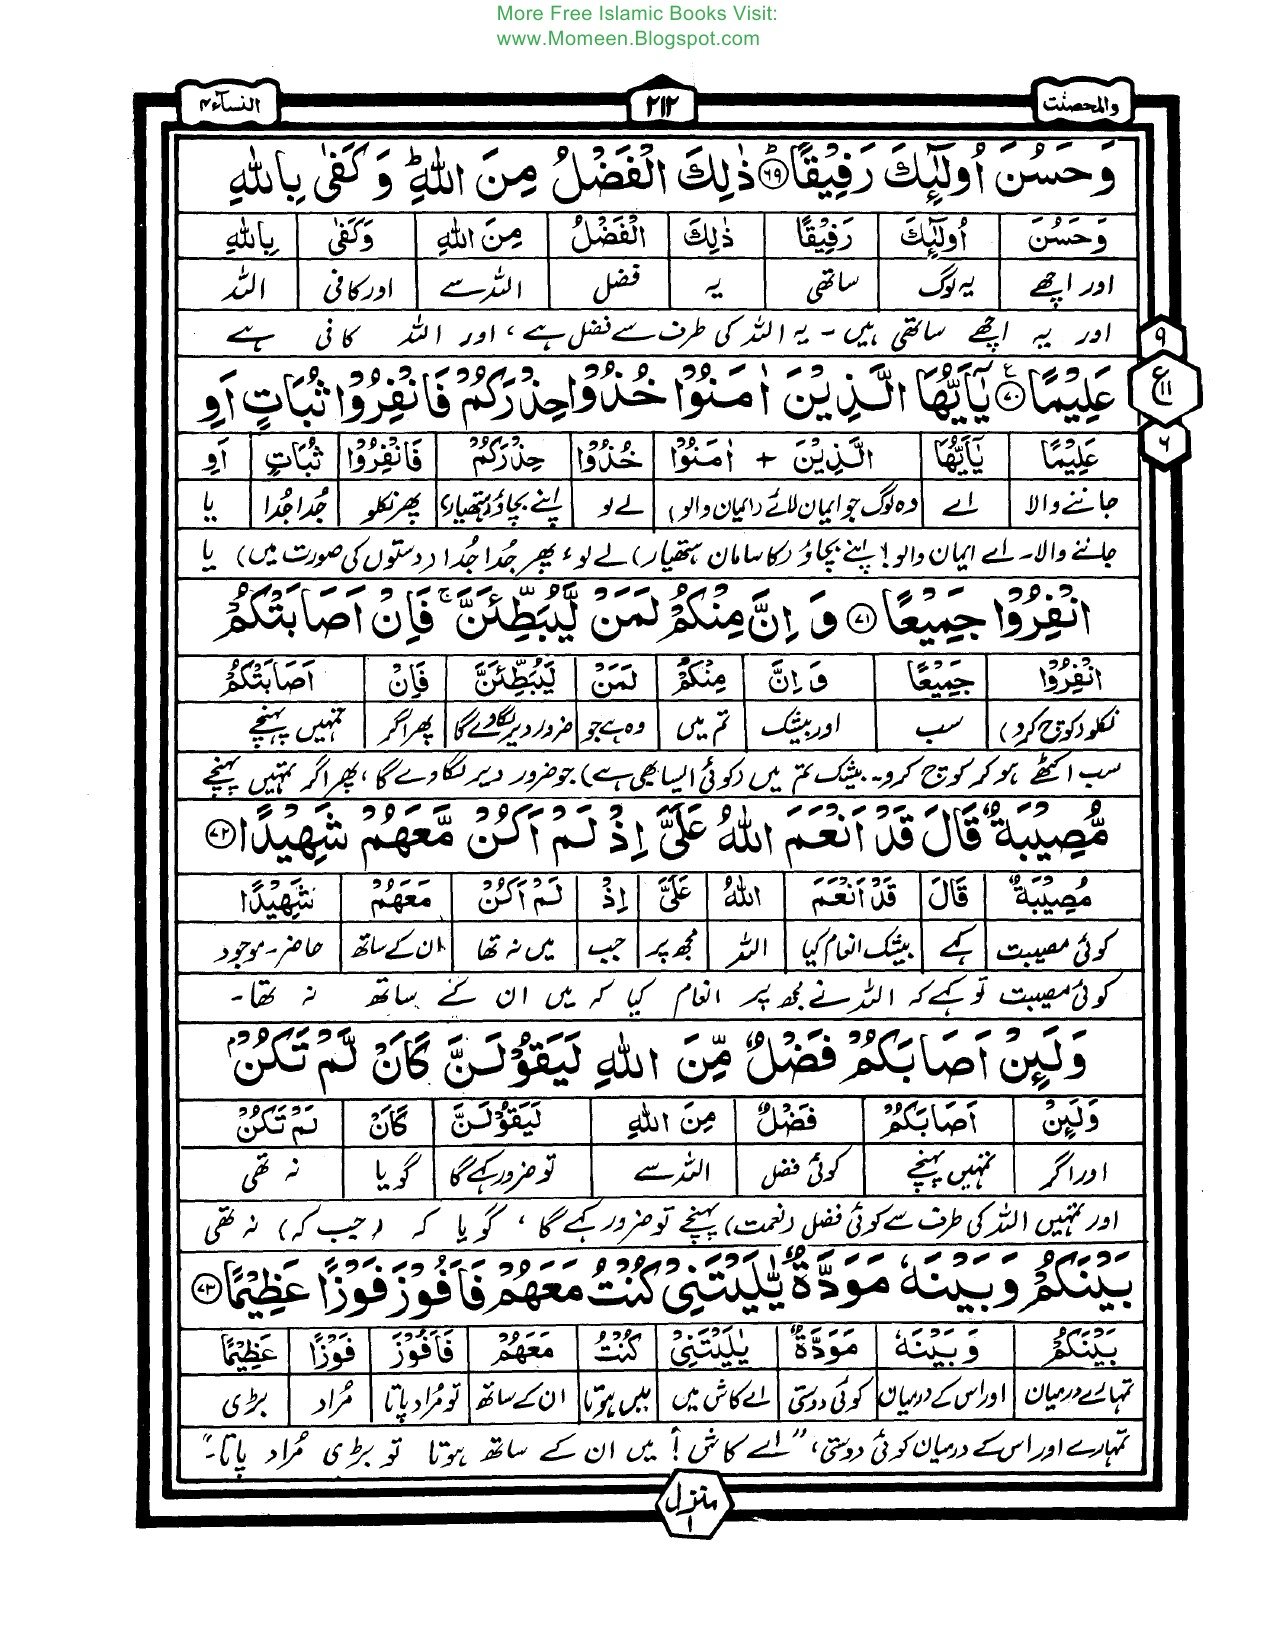 More Free Islamic Books Visit:
www.Momeen.Blogspot.com
والمحصنٰت ٢١٢ النسآء ٤
وَحَسُنَ اُولٰٓئِكَ رَفِيْقًا ﴿٦٩﴾ ذٰلِكَ الْفَضْلُ مِنَ اللّٰهِ ؕ وَكَفٰى بِاللّٰهِ
وَحَسُنَ اُولٰٓئِكَ رَفِيْقًا ذٰلِكَ الْفَضْلُ مِنَ اللّٰهِ وَكَفٰى بِاللّٰهِ
اور اچھے یہ لوگ ساتھی یہ فضل اللہ سے اور کافی اللہ
اور یہ اچھے ساتھی ہیں ۔ یہ اللہ کی طرف سے فضل ہے ، اور اللہ کافی ہے
٩
ع ١١
٦
عَلِيْمًا ﴿٧٠﴾ يٰٓاَيُّهَا الَّذِيْنَ اٰمَنُوْا خُذُوْا حِذْرَكُمْ فَانْفِرُوْا ثُبَاتٍ اَوِ
عَلِيْمًا يٰٓاَيُّهَا الَّذِيْنَ + اٰمَنُوْا خُذُوْا حِذْرَكُمْ فَانْفِرُوْا ثُبَاتٍ اَوِ
جاننے والا اے وہ لوگ جو ایمان لائے (ایمان والو) لے لو اپنے بچاؤ (ہتھیار) پھر نکلو جُدا جُدا یا
جاننے والا۔ اے ایمان والو! اپنے بچاؤ (کا سامان ہتھیار) لے لو ، پھر جُدا جُدا (دستوں کی صورت میں) یا
انْفِرُوْا جَمِيْعًا ﴿٧١﴾ وَ اِنَّ مِنْكُمْ لَمَنْ لَّيُبَطِّئَنَّ ۚ فَاِنْ اَصَابَتْكُمْ
انْفِرُوْا جَمِيْعًا وَ اِنَّ مِنْكُمْ لَمَنْ لَيُبَطِّئَنَّ فَاِنْ اَصَابَتْكُمْ
نکلو (کوچ کرو) سب اور بیشک تم میں وہ ہے جو ضرور دیر لگا دے گا پھر اگر تمہیں پہنچے
سب اکٹھے ہو کر کوچ کرو۔ بیشک تم میں (کوئی ایسا بھی ہے) جو ضرور دیر لگا دے گا ، پھر اگر تمہیں پہنچے
مُّصِيْبَةٌ قَالَ قَدْ اَنْعَمَ اللّٰهُ عَلَيَّ اِذْ لَمْ اَكُنْ مَّعَهُمْ شَهِيْدًا ﴿٧٢﴾
مُصِيْبَةٌ قَالَ قَدْ اَنْعَمَ اللّٰهُ عَلَيَّ اِذْ لَمْ اَكُنْ مَعَهُمْ شَهِيْدًا
کوئی مصیبت کہے بیشک انعام کیا اللہ مجھ پر جب میں نہ تھا ان کے ساتھ حاضر۔موجود
کوئی مصیبت تو کہے کہ اللہ نے مجھ پر انعام کیا کہ میں ان کے ساتھ نہ تھا۔
وَلَئِنْ اَصَابَكُمْ فَضْلٌ مِّنَ اللّٰهِ لَيَقُوْلَنَّ كَاَنْ لَّمْ تَكُنْ ۢ
وَلَئِنْ اَصَابَكُمْ فَضْلٌ مِنَ اللّٰهِ لَيَقُوْلَنَّ كَاَنْ لَمْ تَكُنْ
اور اگر تمہیں پہنچے کوئی فضل اللہ سے تو ضرور کہے گا گویا نہ تھی
اور تمہیں اللہ کی طرف سے کوئی فضل (نعمت) پہنچے تو ضرور کہے گا ، گویا کہ (جب کہ) نہ تھی
بَيْنَكُمْ وَبَيْنَهٗ مَوَدَّةٌ يّٰلَيْتَنِيْ كُنْتُ مَعَهُمْ فَاَفُوْزَ فَوْزًا عَظِيْمًا ﴿٧٣﴾
بَيْنَكُمْ وَبَيْنَهٗ مَوَدَّةٌ يٰلَيْتَنِيْ كُنْتُ مَعَهُمْ فَاَفُوْزَ فَوْزًا عَظِيْمًا
تمہارے درمیان اور اس کے درمیان کوئی دوستی اے کاش میں میں ہوتا ان کے ساتھ تو مُراد پاتا مُراد بڑی
تمہارے اور اس کے درمیان کوئی دوستی، "اے کاش! میں ان کے ساتھ ہوتا تو بڑی مُراد پاتا۔"
منزل ١